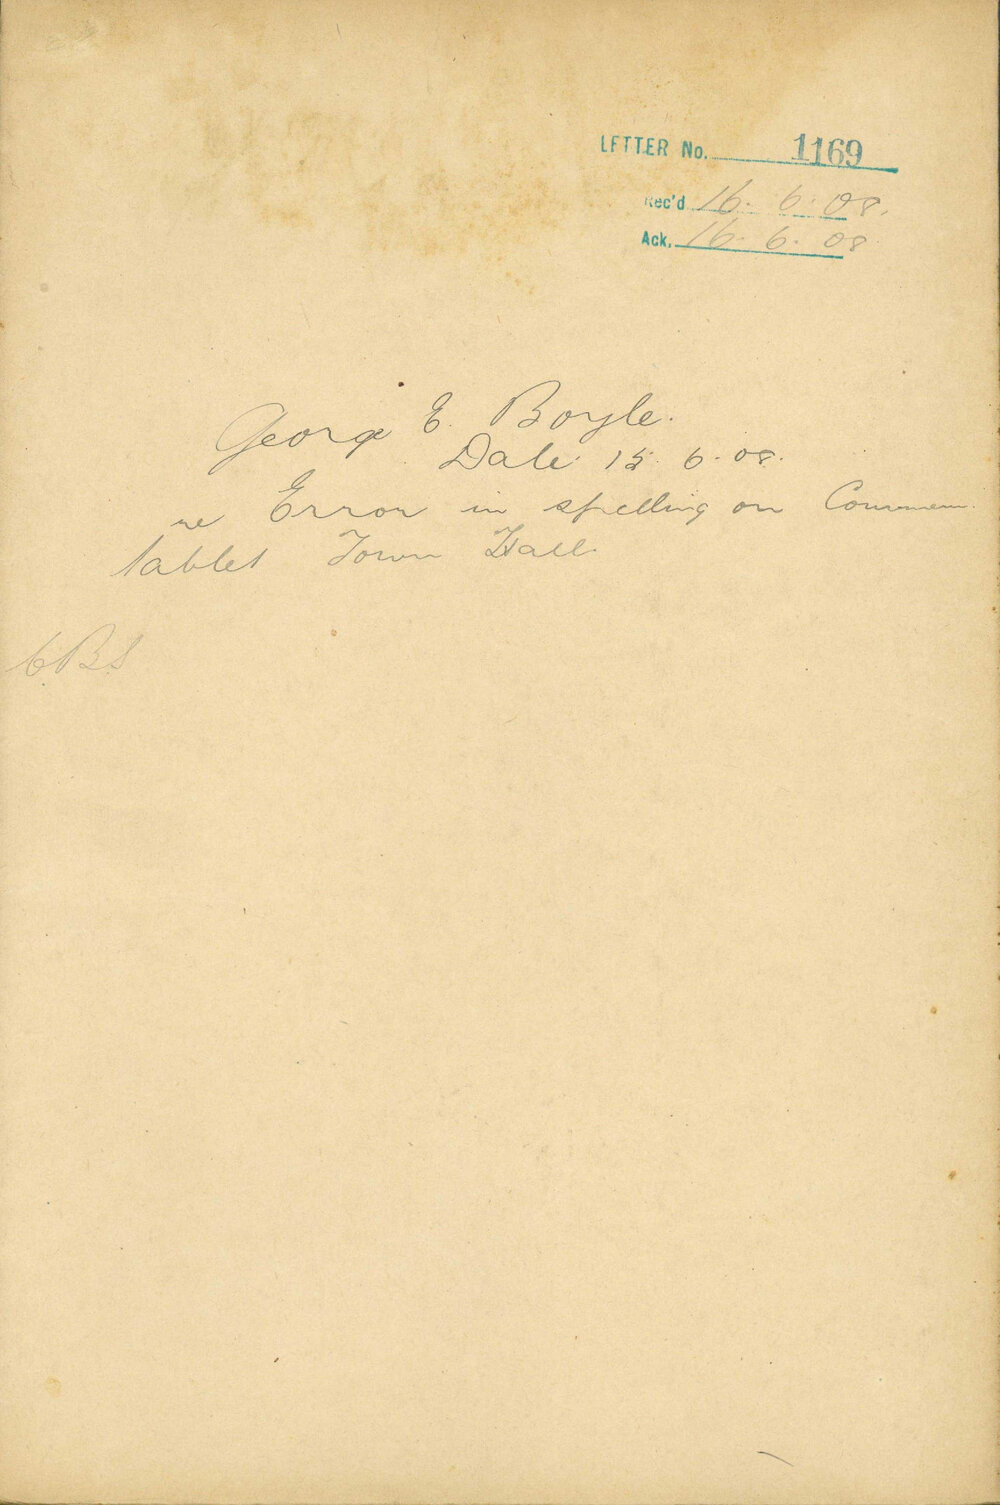 LETTER No. 1169
Rec'd 16. 6. 08.
Ack. 16. 6. 08
George E. Boyle.
Date 15. 6. 08.
re Error in spelling on Commem.
tablet Town Hall.